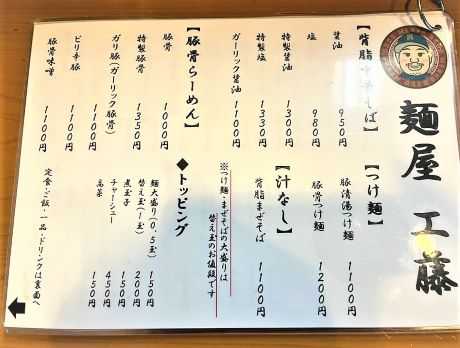 麺屋 工藤
【背脂中華そば】
醤油 950円
塩 980円
特製醤油 1300円
特製塩 1330円
ガーリック醤油 1100円
【豚骨らーめん】
豚骨 1000円
特製豚骨 1350円
ガリ豚(ガーリック豚骨) 1100円
ピリ辛豚 1100円
豚骨味噌 1100円
【つけ麺】
豚清湯つけ麺 1100円
豚骨つけ麺 1200円
【汁なし】
背脂まぜそば 1100円
※つけ麺・まぜそばの大盛りは
替え玉のお値段です
◆トッピング
麺大盛り(0.5玉) 150円
替え玉(1玉) 200円
煮玉子 150円
チャーシュー 450円
高菜 150円
定食・ご飯・一品・ドリンクは裏面へ